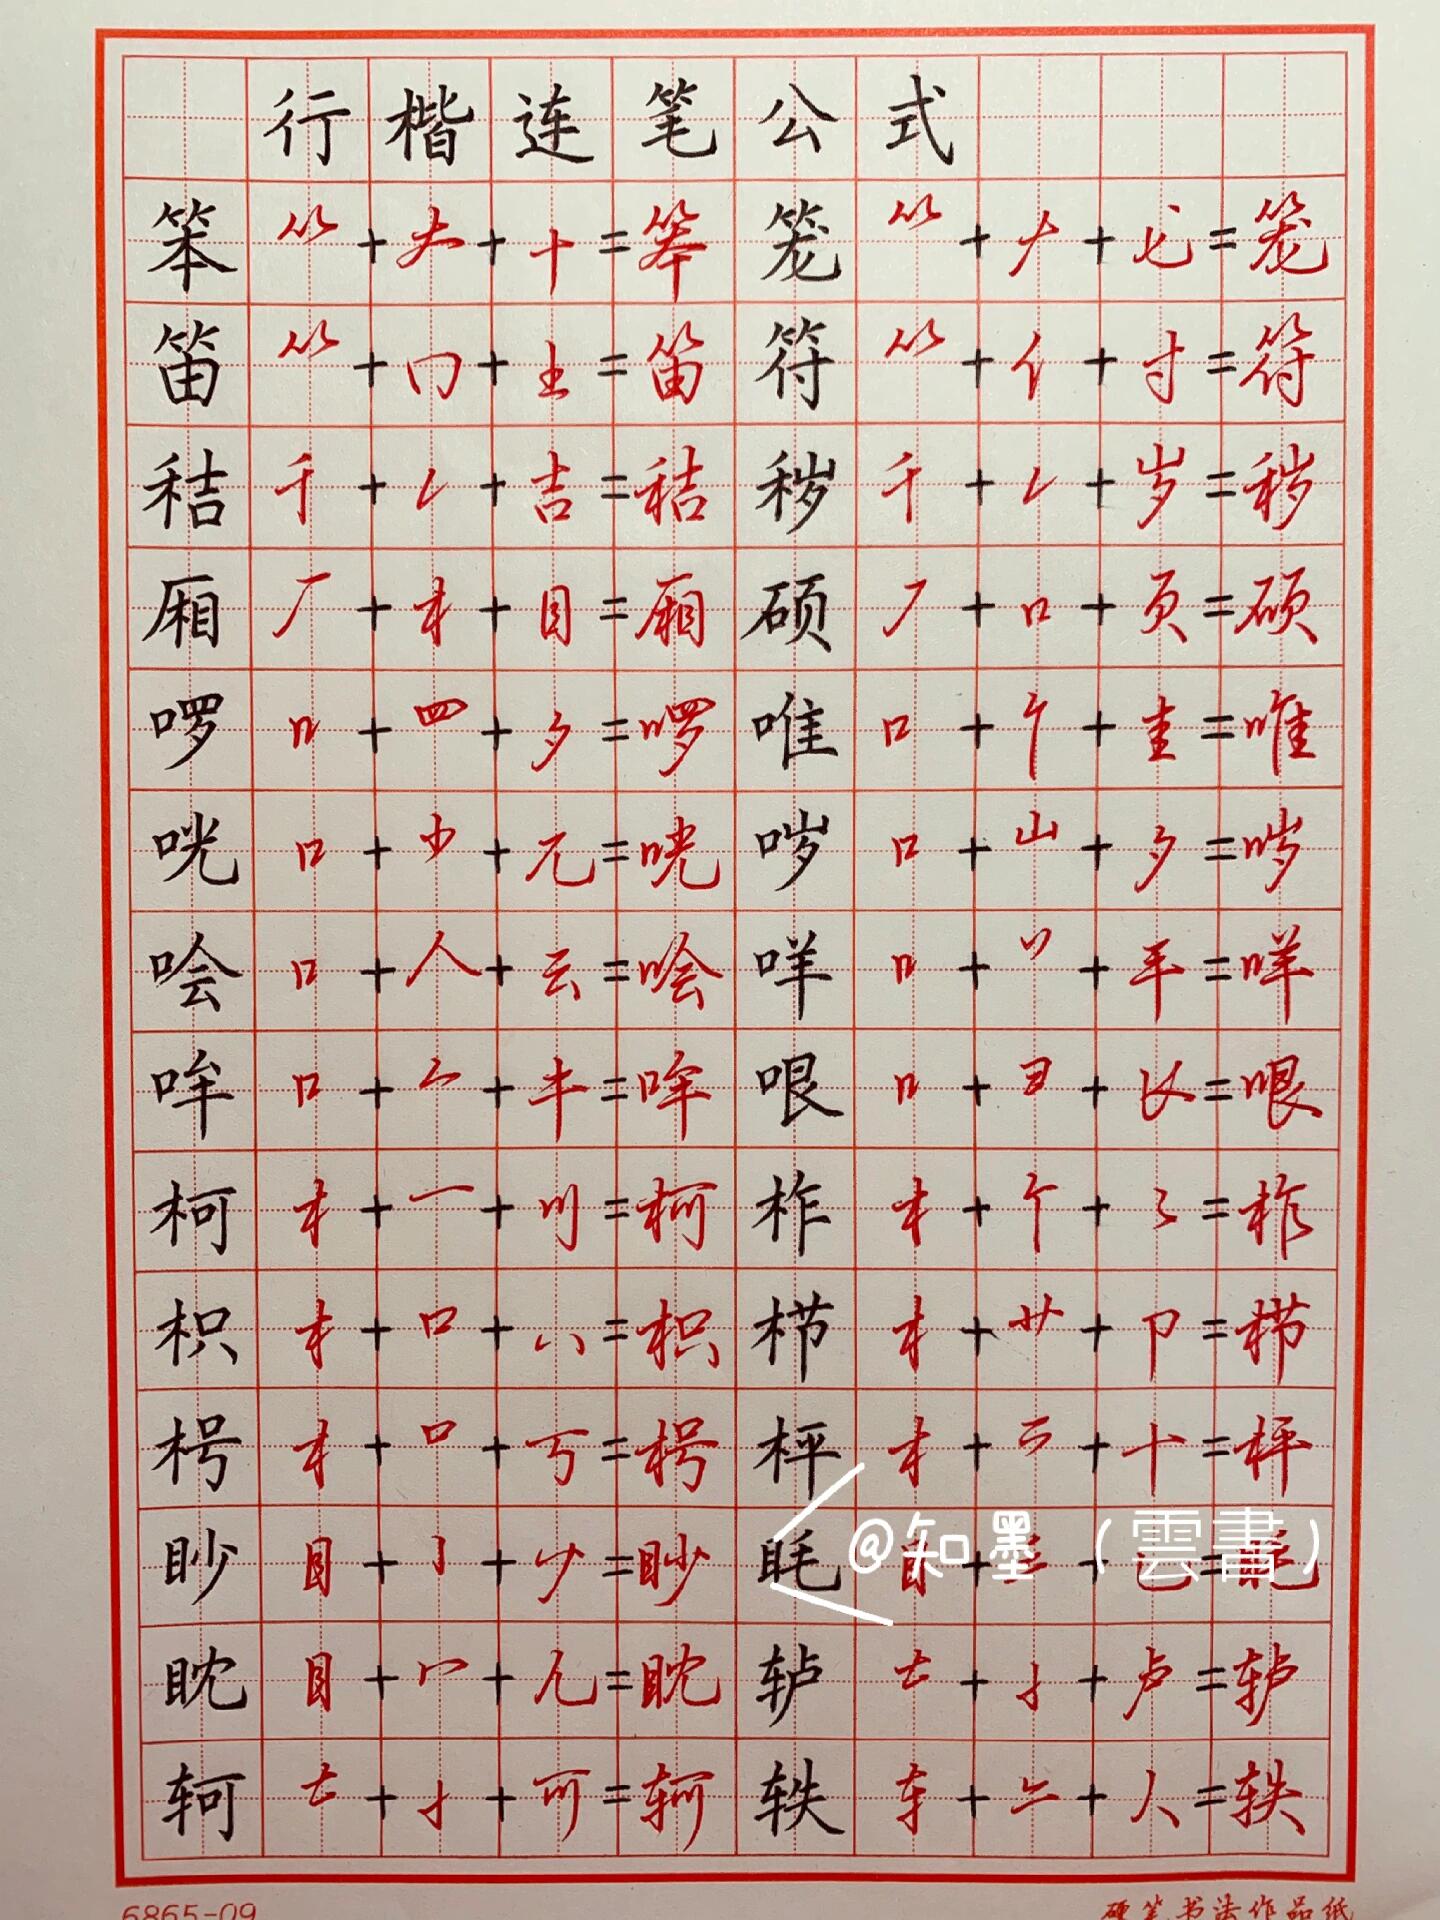 行楷连笔公式
笨 𥫗+大+十=笨 笼 𥫗+ナ+匕=笼
笛 𥫗+冂+土=笛 符 𥫗+亻+寸=符
秸 千+㇀+吉=秸 秽 千+㇀+岁=秽
厢 厂+木+目=厢 硕 丆+口+页=硕
啰 口+罒+夕=啰 唯 口+亻+圭=唯
咣 口+⺌+兀=咣 哕 口+山+夕=哕
哙 口+人+云=哙 咩 口+丷+平=咩
哞 口+厶+牛=哞 哏 口+彐+𠄌=哏
柯 木+一+刂=柯 柞 木+亻+=柞
枳 木+口+八=枳 栉 木+艹+卩=栉
枵 木+口+丂=枵 枰 木+丆+十=枰
眇 目+亅+少=眇 眊 目+=眊
眈 目+冖+尢=眈 轳 +卢=轳
轲 +可=轲 轶 车+𠂉+人=轶
@知墨（雲書）
6865-09
硬笔书法作品纸